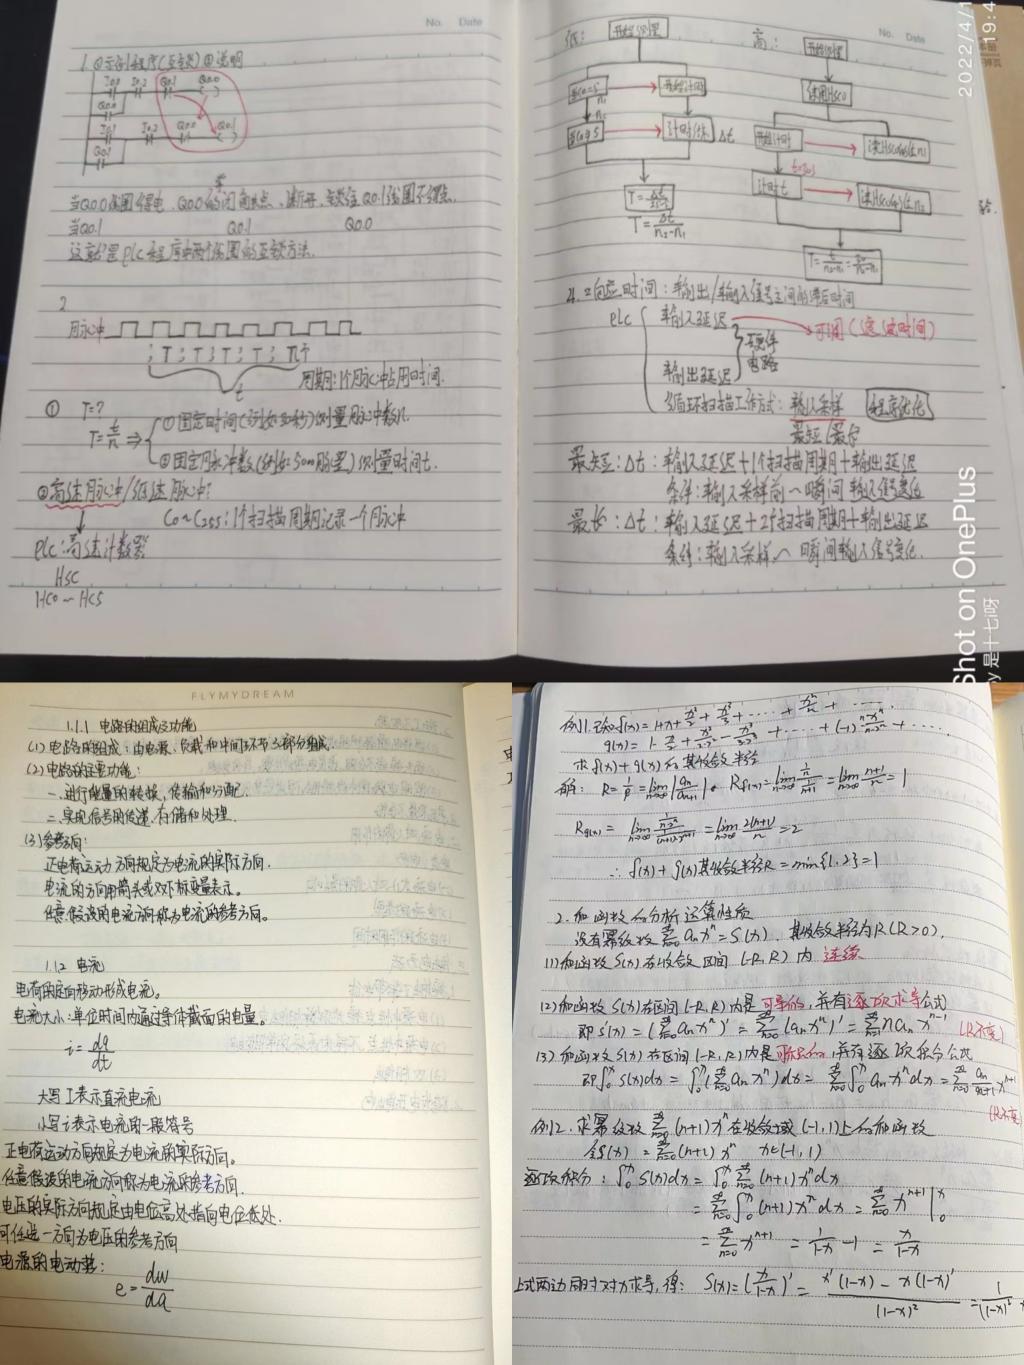 No. Date
1. ①示例程序(互锁) ②说明
I0.0 I0.2 Q0.1 Q0.0
Q0.0
I0.1 I0.2 Q0.0 Q0.1
Q0.1
当Q0.0线圈得电,Q0.0的闭触点断开,Q0.1线圈不得点.
当Q0.1 Q0.1 Q0.0
这就是PLC程序中两个线圈的互锁方法.
2
脉冲
T T T T n个
t
周期:1个脉冲占用时间.
① T=?
T=t/n ⇒ ①固定时间(例如30秒)测量脉冲数n.
②固定脉冲数(例如500脉冲)测量时间t.
②高速脉冲/低速脉冲?
C0~C255:1个扫描周期记录一个脉冲
PLC:高速计数器
HSC
HC0~HC5
No. Date
低: 开始处理
开始计时
n₁
计时 Δt
T=Δt/(n₂-n₁)
高: 开始处理
使用HSC0
开始计时
计时t
4. 响应时间:输出/输入信号之间的滞后时间
PLC
输入延迟 可调(滤波时间)
输出延迟
硬件
电路
循环扫描工作方式:输入采样 程序优化
最短/最长
最短:Δt:输入延迟+1个扫描周期+输出延迟
条件:输入采样前一瞬间输入信号变化
最长:Δt:输入延迟+2个扫描周期+输出延迟
条件:输入采样 一瞬间输入信号变化.
2022/4/1 19:4
Shot on OnePlus
y 是十七呀
FLYMYDREAM
1.1.1 电路的组成及功能
(1)电路的组成:由电源、负载和中间环节3部分组成.
(2)电路的主要功能:
一.进行能量的转换,传输和分配.
二.实现信号的传递,存储和处理.
(3)参考方向:
正电荷运动方向规定为电流的实际方向.
电流的方向用箭头或双下标变量表示。
任意假设的电流方向称为电流的参考方向。
1.1.2 电流
电荷的定向移动形成电流。
电流大小:单位时间内通过导体截面的电量。
i=dq/dt
大写I表示直流电流
小写i表示电流的一般符号
正电荷运动方向规定为电流的实际方向。
任意假设的电流方向称为电流的参考方向.
电压的实际方向规定由电位高处指向电位低处.
可任选一方向为电压的参考方向
电源的电动势:
e=dw/dq
例11.已知f(x)=1+x+x²/2+x³/3+……+xⁿ/n+……
求f(x)+g(x)的其收敛半径
解: R=1/ρ=lim n→∞|aₙ/aₙ₊₁|. R_f(x)=lim n→∞ (1/n)/(1/(n+1))=lim n→∞ (n+1)/n=1
R_g(x)=lim n→∞ (1/(n·2ⁿ))/(1/((n+1)·2ⁿ⁺¹))=lim n→∞ 2(n+1)/n=2
∴ f(x)+g(x)其收敛半径R=min{1,2}=1
2.和函数的分析运算性质
设有幂级数∑aₙxⁿ=S(x),其收敛半径为R(R>0).
(1)和函数S(x)在收敛区间(-R,R)内 连续
(2)和函数S(x)在区间(-R,R)内是可导的,并有逐项求导公式
即S'(x)=(∑aₙxⁿ)'=∑(aₙxⁿ)'=∑naₙxⁿ⁻¹ (R不变)
(3)和函数S(x)在区间(-R,R)内是可积的,并有逐项积分公式
即∫₀ˣS(x)dx=∫₀ˣ(∑aₙxⁿ)dx=∑∫₀ˣaₙxⁿdx=∑aₙ/(n+1)xⁿ⁺¹
(R不变)
例12.求幂级数∑(n+1)xⁿ在收敛域(-1,1)上的和函数
令S(x)=∑(n+1)xⁿ x∈(-1,1)
逐项积分:∫₀ˣS(x)dx=∫₀ˣ∑(n+1)xⁿdx
=∑∫₀ˣ(n+1)xⁿdx=∑xⁿ⁺¹|₀ˣ
=∑xⁿ⁺¹=1/(1-x)-1=x/(1-x)
上式两边同时对x求导,得: S(x)=(x/(1-x))'=(x'(1-x)-x(1-x)')/(1-x)²=1/(1-x)²